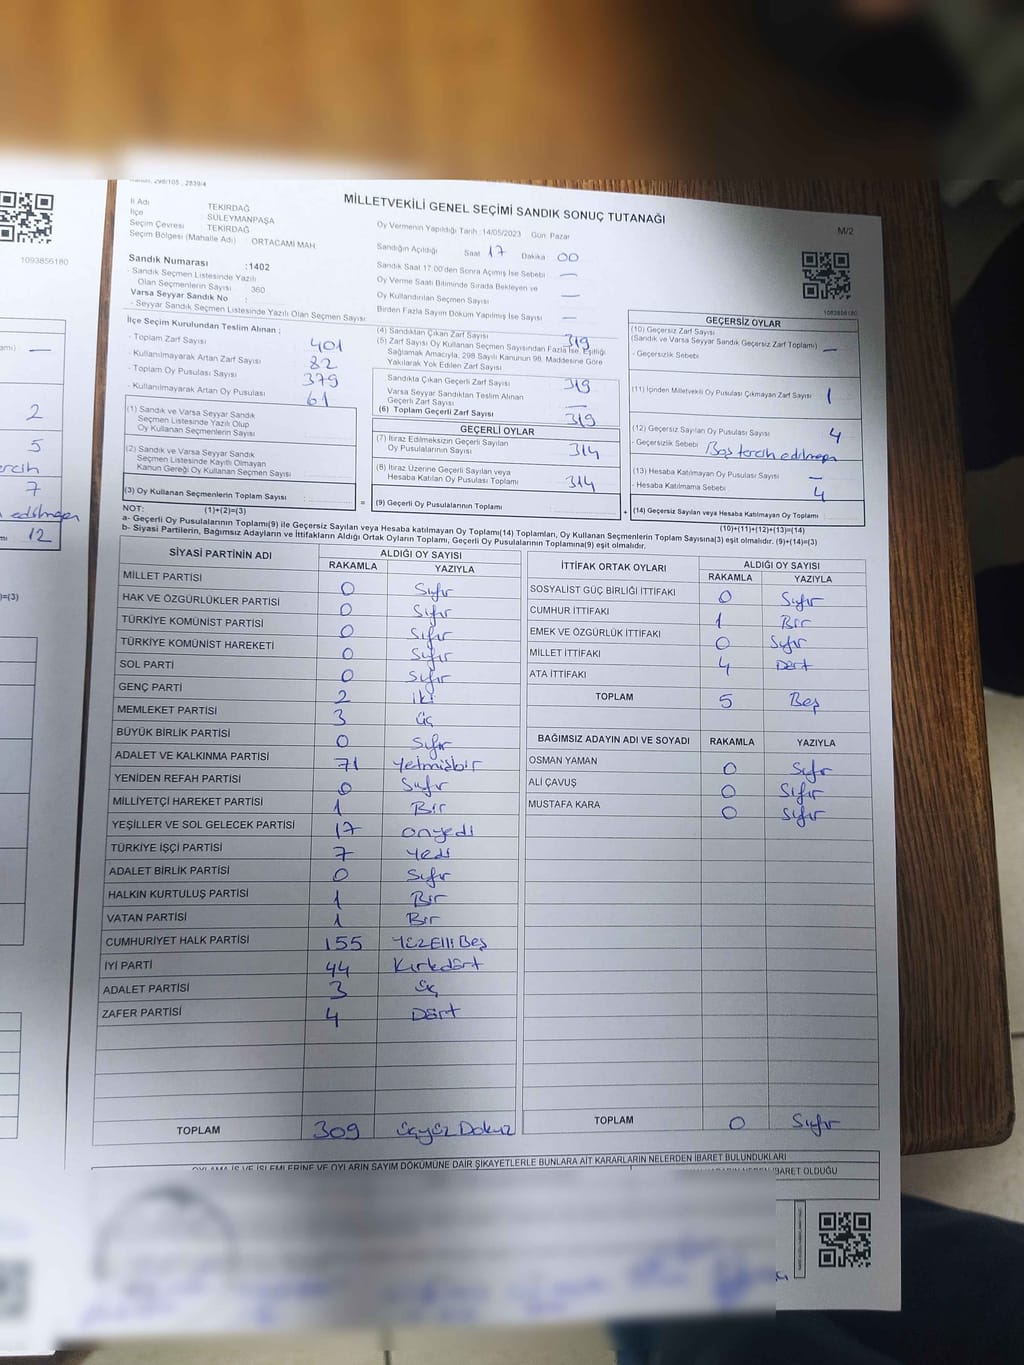 2
5
7
12
1093856180
MİLLETVEKİLİ GENEL SEÇİMİ SANDIK SONUÇ TUTANAĞI
M/2
İl Adı TEKİRDAĞ
İlçe : SÜLEYMANPAŞA
Seçim Çevresi TEKİRDAĞ
Seçim Bölgesi (Mahalle Adı) : ORTACAMİ MAH.
Oy Vermenin Yapıldığı Tarih :14/05/2023 Gün: Pazar
Sandığın Açıldığı Saat 17 Dakika 00
Sandık Saat 17.00'den Sonra Açılmış İse Sebebi —
Oy Verme Saati Bitiminde Sırada Bekleyen ve
Oy Kullandırılan Seçmen Sayısı —
Birden Fazla Sayım Döküm Yapılmış İse Sayısı : —
Sandık Numarası :1402
- Sandık Seçmen Listesinde Yazılı
Olan Seçmenlerin Sayısı 360
Varsa Seyyar Sandık No :
- Seyyar Sandık Seçmen Listesinde Yazılı Olan Seçmen Sayısı:
İlçe Seçim Kurulundan Teslim Alınan :
- Toplam Zarf Sayısı 401
- Kullanılmayarak Artan Zarf Sayısı 82
- Toplam Oy Pusulası Sayısı 379
- Kullanılmayarak Artan Oy Pusulası 61
(1) Sandık ve Varsa Seyyar Sandık
Seçmen Listesinde Yazılı Olup
Oy Kullanan Seçmenlerin Sayısı
(2) Sandık ve Varsa Seyyar Sandık
Seçmen Listesinde Kayıtlı Olmayan
Kanun Gereği Oy Kullanan Seçmen Sayısı
(3) Oy Kullanan Seçmenlerin Toplam Sayısı :
(4) Sandıktan Çıkan Zarf Sayısı 319
(5) Zarf Sayısı Oy Kullanan Seçmen Sayısından Fazla İse, Eşitliği
Sağlamak Amacıyla, 298 Sayılı Kanunun 98. Maddesine Göre
Yakılarak Yok Edilen Zarf Sayısı
Sandıkta Çıkan Geçerli Zarf Sayısı 319
Varsa Seyyar Sandıktan Teslim Alınan
Geçerli Zarf Sayısı —
(6) Toplam Geçerli Zarf Sayısı 319
GEÇERLİ OYLAR
(7) İtiraz Edilmeksizin Geçerli Sayılan
Oy Pusulalarının Sayısı 314
(8) İtiraz Üzerine Geçerli Sayılan veya
Hesaba Katılan Oy Pusulası Toplamı 314
= (9) Geçerli Oy Pusulalarının Toplamı
1093856180
GEÇERSİZ OYLAR
(10) Geçersiz Zarf Sayısı
(Sandık ve Varsa Seyyar Sandık Geçersiz Zarf Toplamı) —
- Geçersizlik Sebebi
(11) İçinden Milletvekili Oy Pusulası Çıkmayan Zarf Sayısı 1
(12) Geçersiz Sayılan Oy Pusulası Sayısı 4
- Geçersizlik Sebebi Boş tercih edilmeyen
(13) Hesaba Katılmayan Oy Pusulası Sayısı —
- Hesaba Katılmama Sebebi : 4
+ (14) Geçersiz Sayılan veya Hesaba Katılmayan Oy Toplamı
NOT: (1)+(2)=(3)
(10)+(11)+(12)+(13)=(14)
a- Geçerli Oy Pusulalarının Toplamı(9) ile Geçersiz Sayılan veya Hesaba katılmayan Oy Toplamı(14) Toplamları, Oy Kullanan Seçmenlerin Toplam Sayısına(3) eşit olmalıdır. (9)+(14)=(3)
b- Siyasi Partilerin, Bağımsız Adayların ve İttifakların Aldığı Ortak Oyların Toplamı, Geçerli Oy Pusulalarının Toplamına(9) eşit olmalıdır.
SİYASİ PARTİNİN ADI ALDIĞI OY SAYISI
RAKAMLA YAZIYLA
MİLLET PARTİSİ 0 Sıfır
HAK VE ÖZGÜRLÜKLER PARTİSİ 0 Sıfır
TÜRKİYE KOMÜNİST PARTİSİ 0 Sıfır
TÜRKİYE KOMÜNİST HAREKETİ 0 Sıfır
SOL PARTİ 0 Sıfır
GENÇ PARTİ 2 iki
MEMLEKET PARTİSİ 3 üç
BÜYÜK BİRLİK PARTİSİ 0 Sıfır
ADALET VE KALKINMA PARTİSİ 71 Yetmişbir
YENİDEN REFAH PARTİSİ 0 Sıfır
MİLLİYETÇİ HAREKET PARTİSİ 1 Bir
YEŞİLLER VE SOL GELECEK PARTİSİ 17 onyedi
TÜRKİYE İŞÇİ PARTİSİ 7 yedi
ADALET BİRLİK PARTİSİ 0 Sıfır
HALKIN KURTULUŞ PARTİSİ 1 Bir
VATAN PARTİSİ 1 Bir
CUMHURİYET HALK PARTİSİ 155 YüzElliBeş
İYİ PARTİ 44 Kırkdört
ADALET PARTİSİ 3 üç
ZAFER PARTİSİ 4 Dört
TOPLAM 309 üçyüzDokuz
İTTİFAK ORTAK OYLARI ALDIĞI OY SAYISI
RAKAMLA YAZIYLA
SOSYALİST GÜÇ BİRLİĞİ İTTİFAKI 0 Sıfır
CUMHUR İTTİFAKI 1 Bir
EMEK VE ÖZGÜRLÜK İTTİFAKI 0 Sıfır
MİLLET İTTİFAKI 4 Dört
ATA İTTİFAKI
TOPLAM 5 Beş
BAĞIMSIZ ADAYIN ADI VE SOYADI RAKAMLA YAZIYLA
OSMAN YAMAN 0 Sıfır
ALİ ÇAVUŞ 0 Sıfır
MUSTAFA KARA 0 Sıfır
TOPLAM 0 Sıfır
OYLAMA İŞ VE İŞLEMLERİNE VE OYLARIN SAYIM DÖKÜMÜNE DAİR ŞİKAYETLERLE BUNLARA AİT KARARLARIN NELERDEN İBARET BULUNDUKLARI
İBARET OLDUĞU